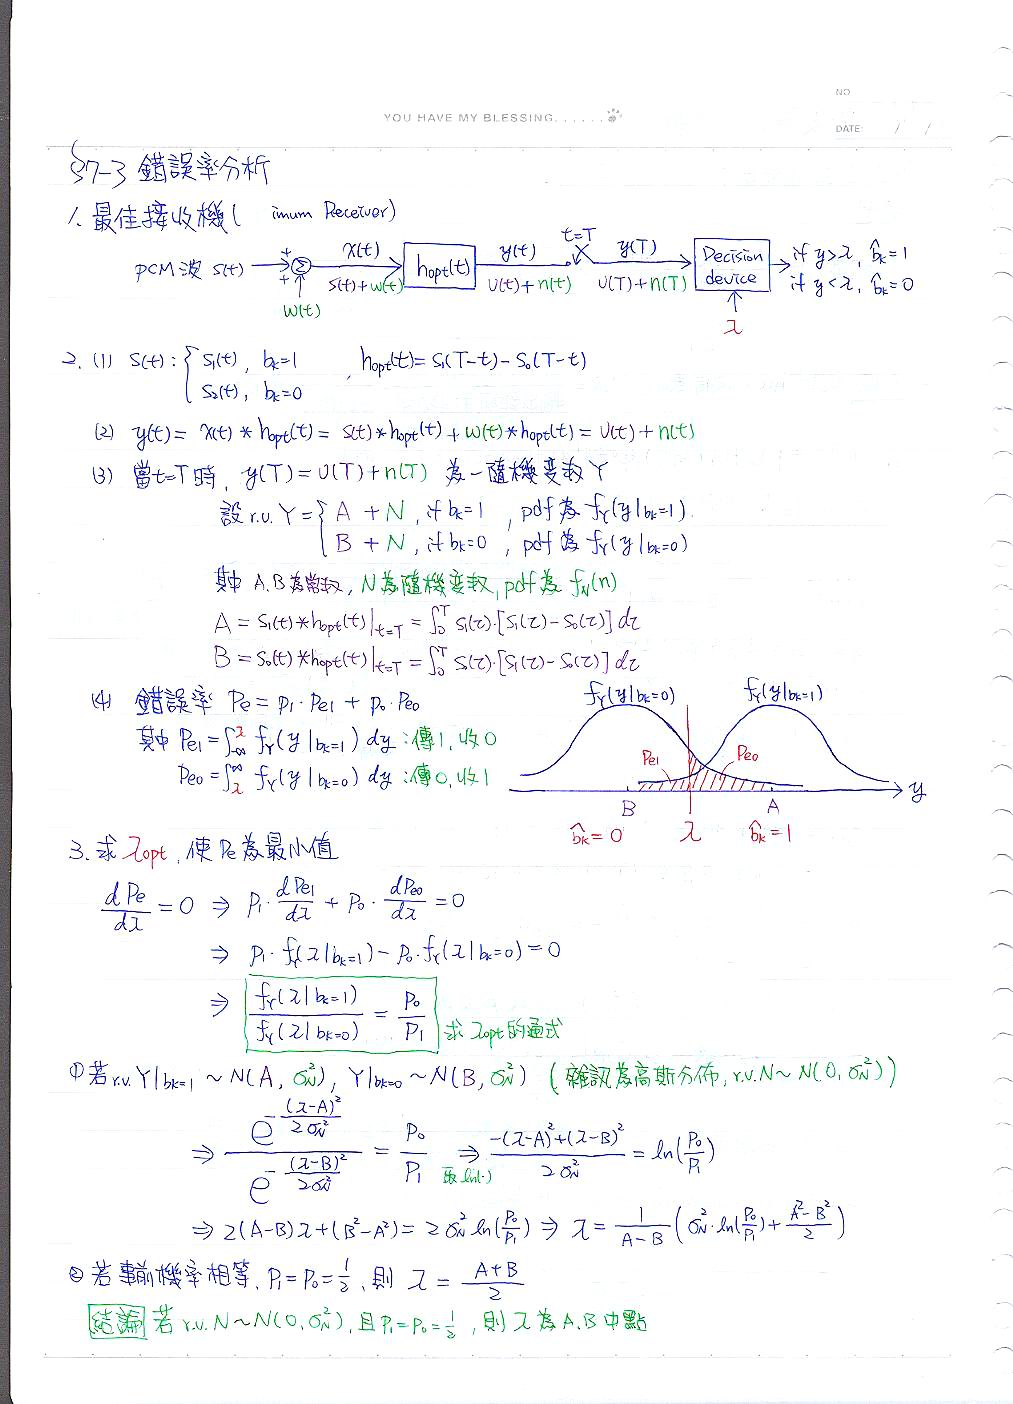 NO
YOU HAVE MY BLESSING......
DATE: / /
§7-3 錯誤率分析
1. 最佳接收機 ( imum Receiver)
PCM波 S(t) + + Σ X(t) S(t)+w(t) w(t) hopt(t) y(t) υ(t)+n(t) t=T y(T) υ(T)+n(T) Decision device λ if y>λ, b̂k=1
if y<λ, b̂k=0
2. (1) S(t): { S₁(t), bk=1 , hopt(t)=S₁(T-t)-S₀(T-t)
S₂(t), bk=0
(2) y(t)= X(t)*hopt(t)= S(t)*hopt(t)+w(t)*hopt(t)=υ(t)+n(t)
(3) 當t=T時, y(T)=υ(T)+n(T) 為一隨機変数Y
設 r.v. Y={ A + N, if bk=1 , pdf為 fY(y|bk=1)
B + N, if bk=0 , pdf為 fY(y|bk=0)
其中 A.B為常数, N為隨機変数, pdf為 fN(n)
A = S₁(t)*hopt(t)|t=T = ∫₀ᵀ S₁(τ)·[S₁(τ)-S₀(τ)] dτ
B = S₀(t)*hopt(t)|t=T = ∫₀ᵀ S(τ)·[S₁(τ)-S₀(τ)] dτ
(4) 錯誤率 Pe = P₁·Pe1 + P₀·Pe0
其中 Pe1=∫_{-∞}^{λ} fY(y|bk=1) dy : 傳1, 收0
Pe0=∫_{λ}^{∞} fY(y|bk=0) dy : 傳0, 收1
fY(y|bk=0) fY(y|bk=1)
Pe1 Pe0
B A y
b̂k=0 λ b̂k=1
3. 求 λopt, 使Pe為最小值
dPe/dλ = 0 ⇒ P₁·dPe1/dλ + P₀·dPe0/dλ = 0
⇒ P₁·fY(λ|bk=1) - P₀·fY(λ|bk=0) = 0
⇒ fY(λ|bk=1)/fY(λ|bk=0) = P₀/P₁ 求 λopt的通式
① 若 r.v. Y|bk=1 ~ N(A, σN²), Y|bk=0 ~ N(B, σN²) (雜訊為高斯分佈, r.v. N~N(0, σN²))
⇒ e^{-(λ-A)²/2σN²} / e^{-(λ-B)²/2σN²} = P₀/P₁ ⇒ 取ln(·) (-(λ-A)²+(λ-B)²)/2σN² = ln(P₀/P₁)
⇒ 2(A-B)λ+(B²-A²)=2σN² ln(P₀/P₁) ⇒ λ = 1/(A-B) (σN²·ln(P₀/P₁)+(A²-B²)/2)
② 若事前機率相等, P₁=P₀=1/2, 則 λ = (A+B)/2
結論 若 r.v. N~N(0, σN²), 且P₁=P₀=1/2, 則 λ為A.B中點